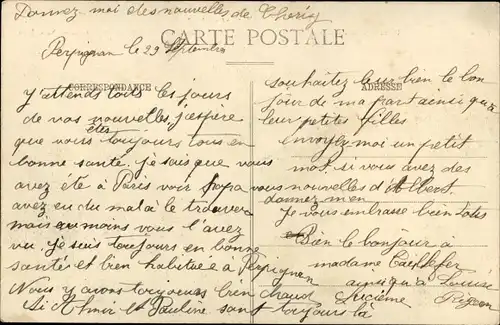 Donnez moi des nouvelles de Cherix
CARTE POSTALE
Perpignan le 29 Septembre
CORRESPONDANCE
ADRESSE
J'attends touts les jours
de vos nouvelles, j'espère
que vous etes toujours tous en
bonne santé. je sais que vous
avez été à Paris voir papa
avez eu du mal à le trouver
mais au moins vous l'avez
vu. je suis toujours en bonne
santé et bien habituée a Perpignan
Nous y avons toujours bien chaud
Si et Pauline sont toujours là
souhaitez leur bien le bon
jour de ma part ainsi qu'a
leur petites filles
envoyez moi un petit
mot. si vous avez des
nouvelles d'Albert
donnez m'en
Je vous embrasse bien tous
Bien le bonjour à
madame
ainsi qu'a Louise
Lucienne